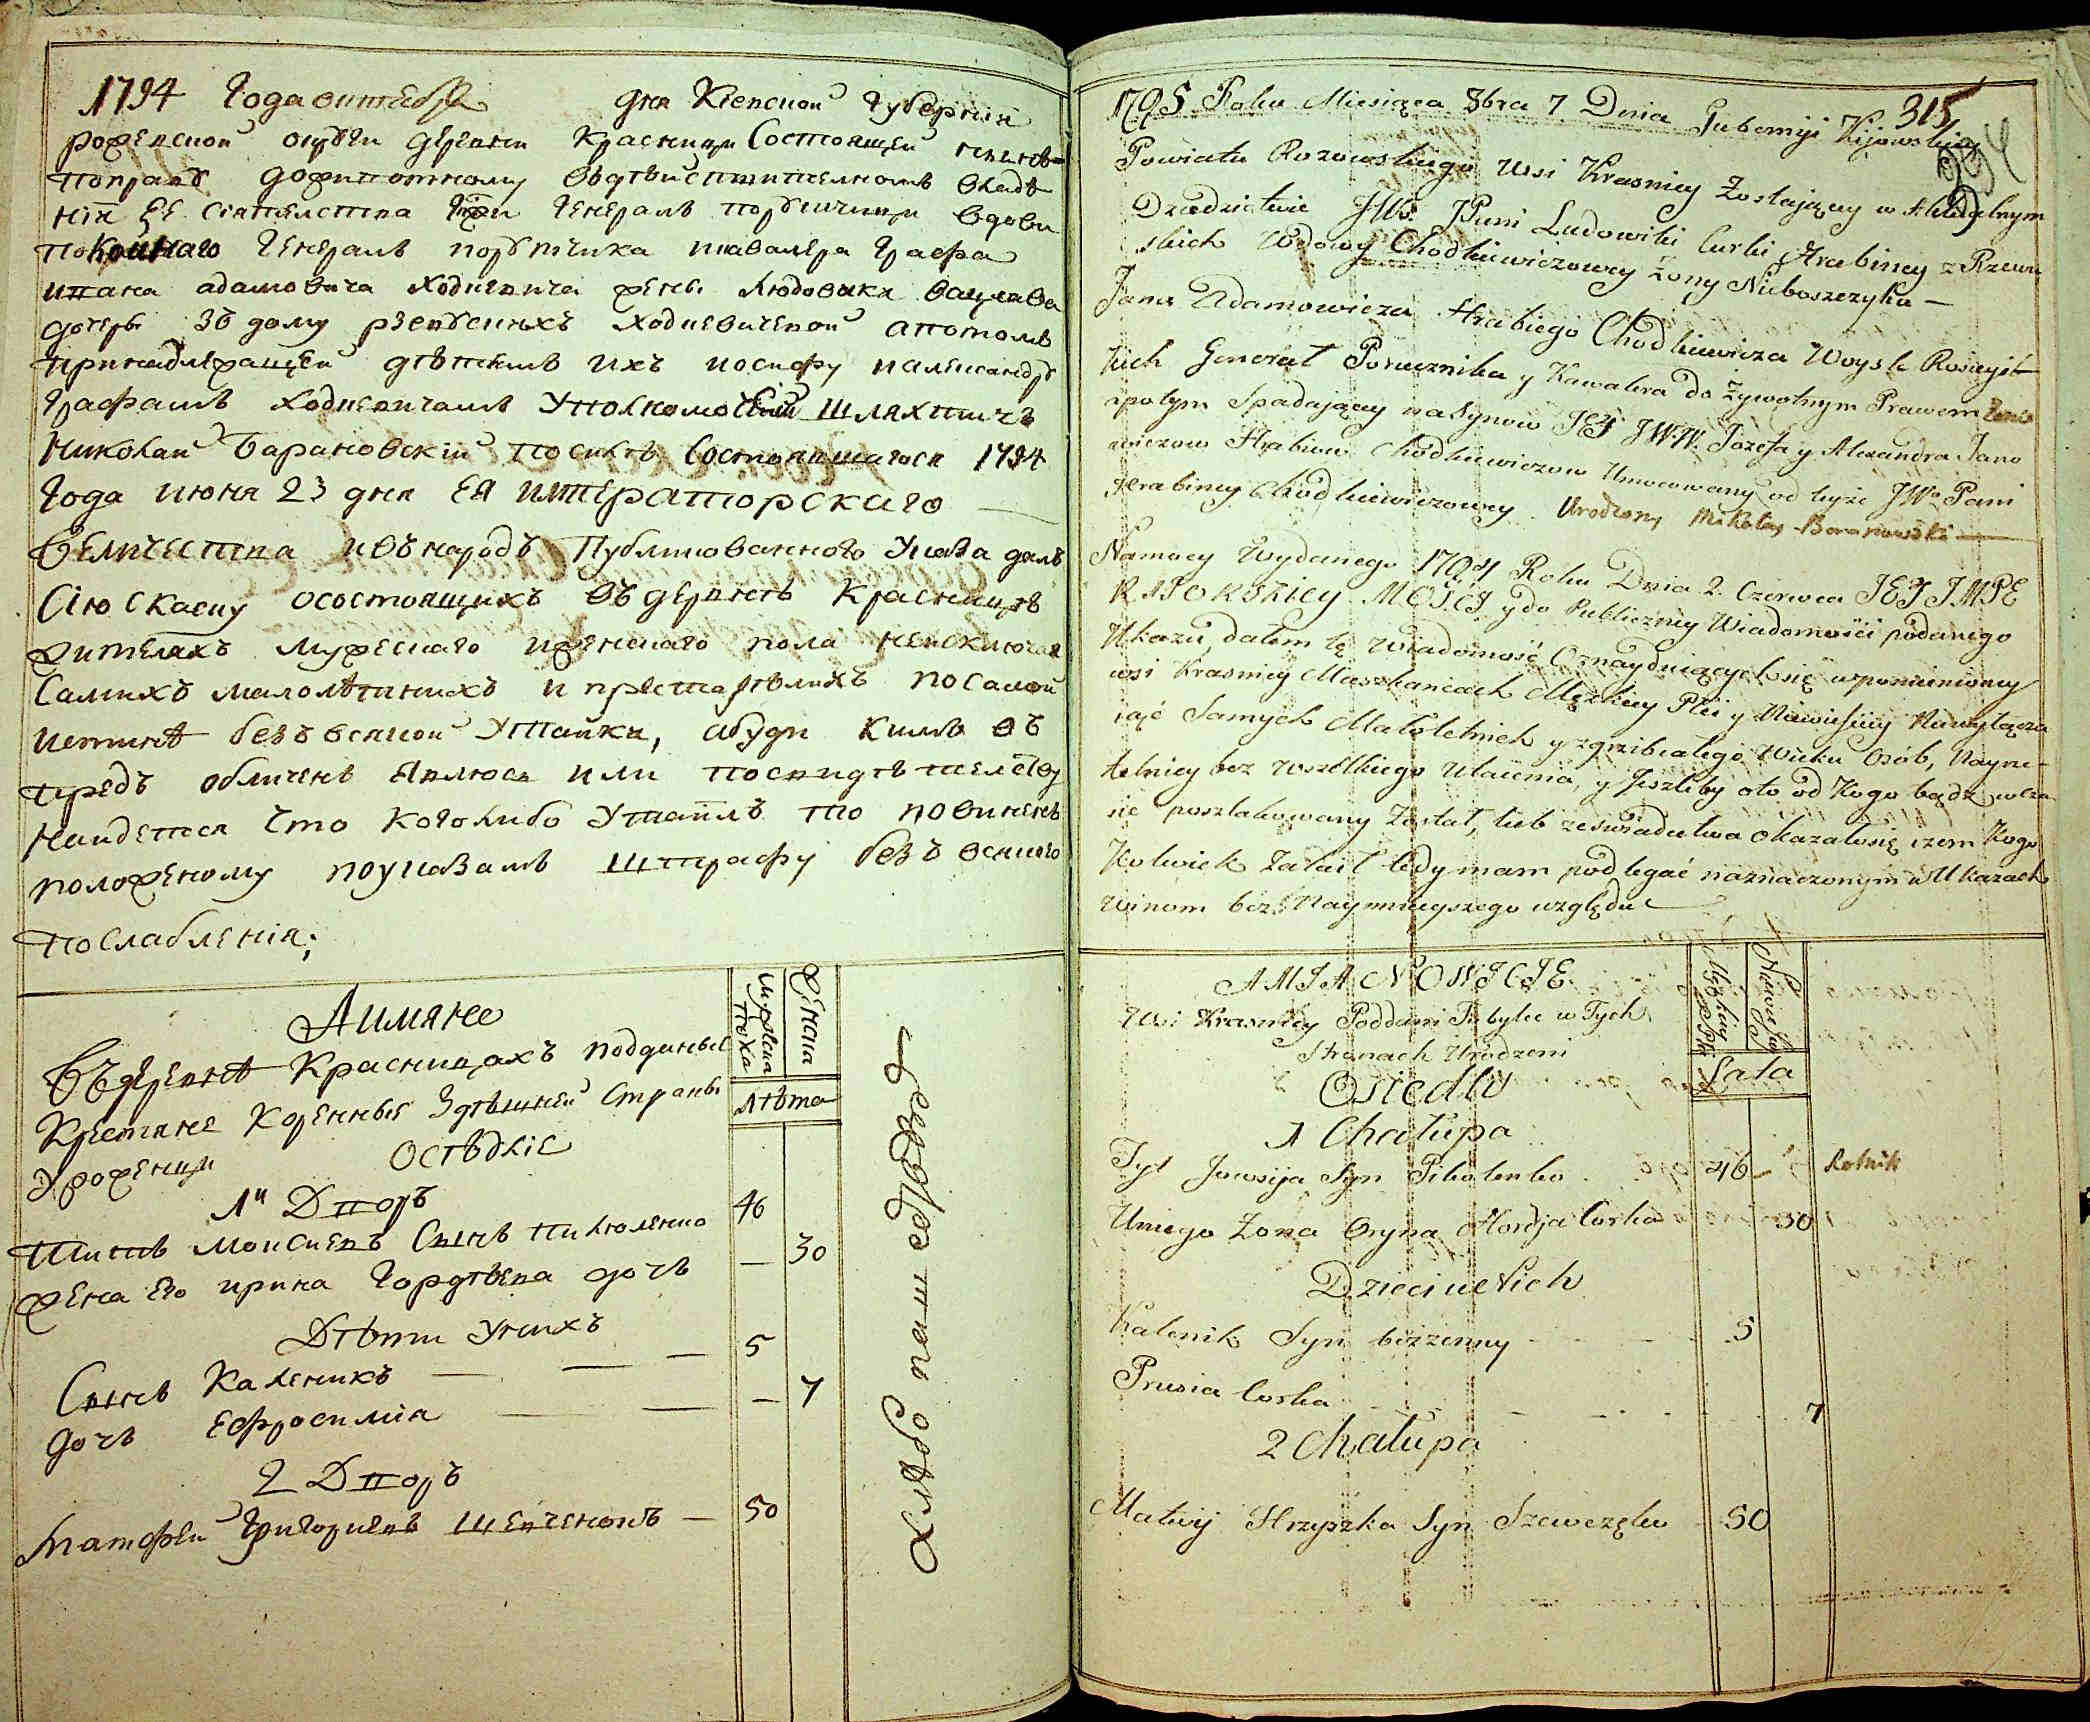 1794 Года октебра дня Киевской Губернiи
роженской округи деревни Красници Состоящей нинѣ
по праву дожитотному въдѣйствителномъ владѣ
нiи Ее Сiятелства Гжи Генералъ порутчици вдови
покойнаго Генералъ порутчика кавалера Графа
ивана адамовича Ходкевича жены Людовики вацлава
дочеры зъ дому рзевускихъ Ходкевичевой апотомъ
принадлежащей дѣтямъ ихъ иосифу иалександру
Графамъ Ходкевичамъ Уполномоченiй Шляхтичъ
Николай Барановскiй посилѣ Состоявшагося 1794
Года июня 23 дня ЕЯ ИМПЕРАТОРСКАГО
Величества ивънародъ Публикованного Указа далъ
Сiю Скаску осостоящихъ въдеревнѣ Красницѣ
жителяхъ мужескаго иженскаго пола неисключая
Самихъ малолѣтнихъ и престарѣлихъ посамой
истинѣ безъ всякой Утайки, абуди кимъ въ
предъ обличенъ явлюся или посвидѣтелству
найдется Что коголибо Утаилъ то повиненъ
положеному поуказамъ Штрафу безъ всякого
послабленiя;
Имяне
Мужеска пола
Женска
Въдеревнѣ Красницахъ подданые
Крестяне Коренные Здѣшней Страны
Уроженци
лѣта
Осѣдлiе
1й Дворъ
Титъ Моисиевъ Сынъ пихоленко 46
жена Его ирина Гордѣева дочъ — 30
Дѣти Унихъ
Сынъ Каленикъ — — — 5
дочъ Ефросимiя — — — 7
2 Дворъ
Матфей Григориевъ Шевченокъ — 50
Хлѣборобъ
1795 Roku Miesiąca 8bra 7 Dnia Gubernji Kijowskiey
315
Powiatu Rozowskiego Wsi Krasnicy Zostaiący w Aktualnym
Dziedzictwie JW. JPani Ludowiki Curki Hrabiney z Rzewu
skich Wdowy Chodkiewiczowey żony Nieboszczyka —
Jana Adamowicza Hrabiego Chodkiewicza Woysk Rosiyis
kich Generał Porucznika y Kawalera do żywotnym Prawem
apotym Spadaiący na Synow JW.W. Jozefa y Alexandra Jano
wiczow Hrabiow Chodkiewiczow Umocowany od teyże JW. Pani
Hrabiney Chodkiewiczowey Urodzony Mikołay Baranowski —
Namocy Wydanego 1794 Roku Dnia 2 Czerwca JEJ IMPE
RATORSKIEY MOŚCI y do Publiczney Wiadomości podanego
Ukazu, dałem tę wiadomość Oznayduiących się wpomienioney
wsi Krasnicy Mieszkancach Męzkiey Płci y Niewieściey Niewyłącza
iąć Samych Małoletnich y zgrzibiałego Wieku Osób, Nayrze
telniey bez wszelkiego Utaienia, y Jeszliby oto od Kogo bądz wcza
sie poszlakowany Został, lub zeświadectwa okazałosię izem Kogo
Kolwiek Zataił tedy mam podlegać naznaczonym w Ukazach
winom bez Naymnieyszego względu
JMIANOWICIE
Męzkiey Płci
Wsi Krasnicy Poddani Tubylce w Tych
Stronach Urodzeni
Lata
Osiedli
1 Chałupa
Tyt Jowsija Syn Pikolenko 46 Rolnik
Uniego Żona Oryna Hordja Corka 30
Dzieci u Nich
Kalenik Syn bezzenny 5
Prusia Corka 7
2 Chałupa
Matwij Hrzyszka Syn Szewczęko 50